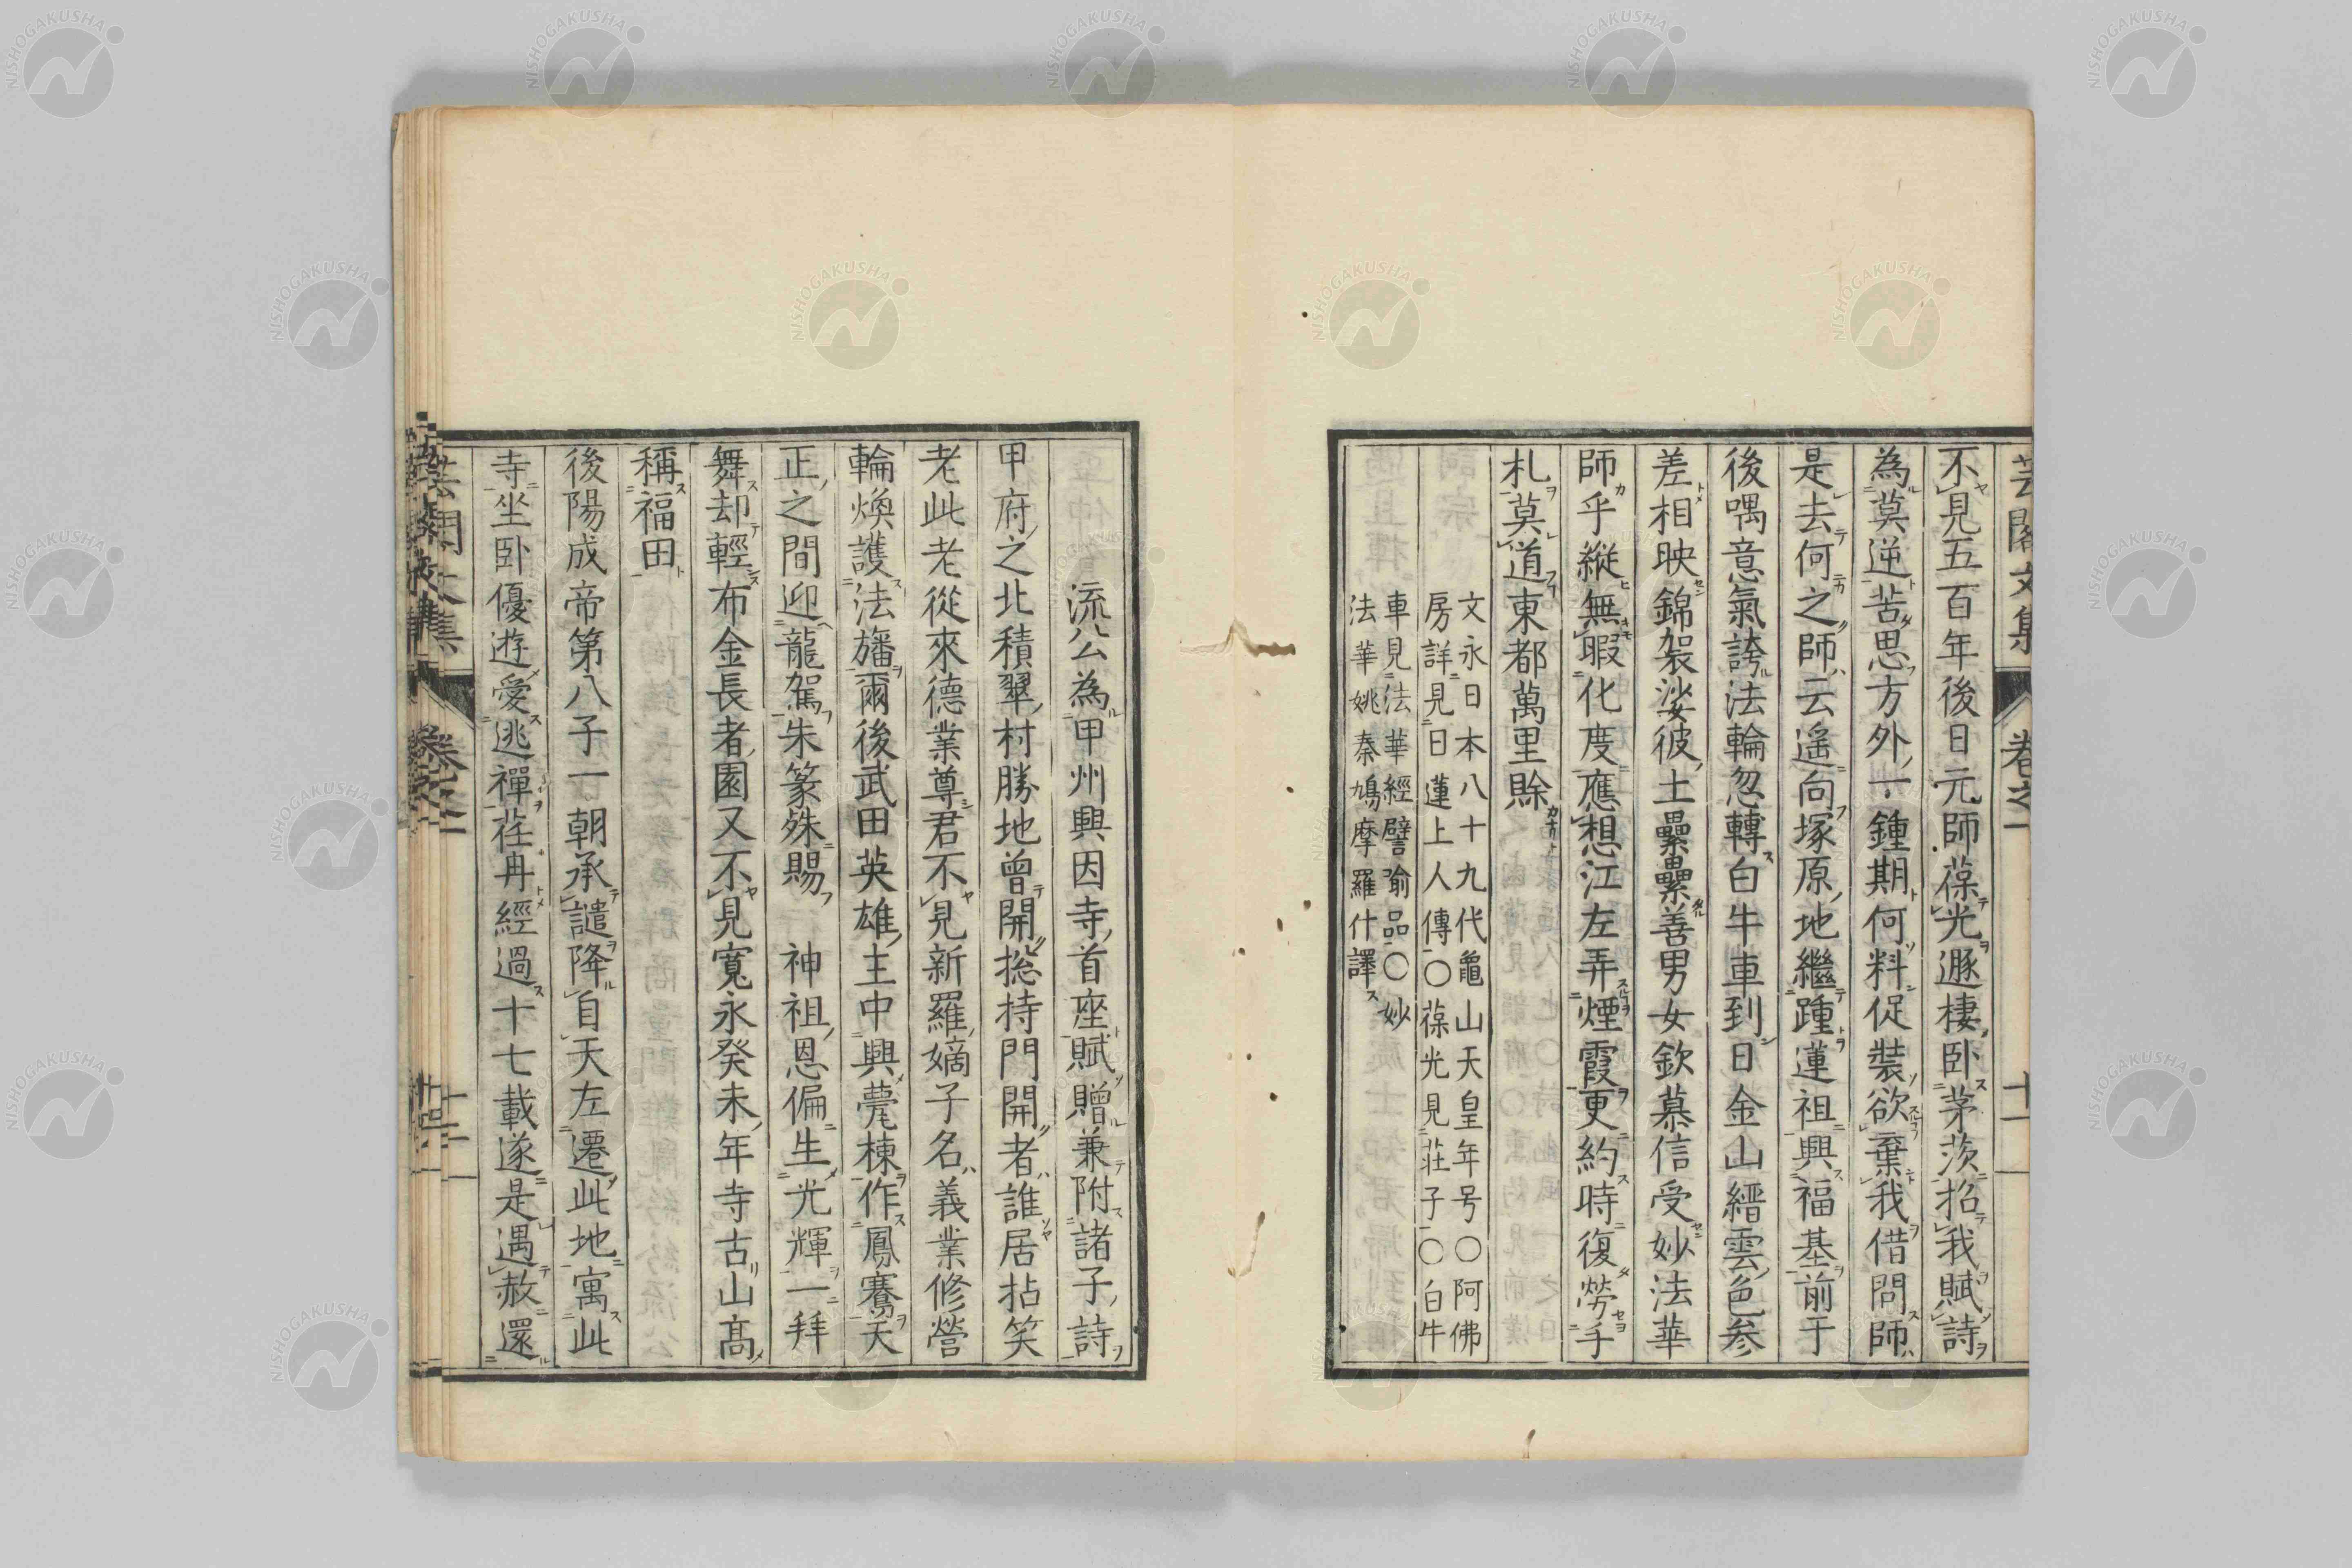 芸閣文集 卷之一 十一
不見五百年後日元師葆光遯棲卧茅茨招我賦詩
為莫逆苦思方外一鍾期何料促裝欲棄我借問師
是去何之師云遥向塚原地繼踵蓮祖興福基前于
後喁意氣誇法輪忽轉白牛車到日金山縉雲色参
差相映錦袈裟彼土纍纍善男女欽慕信受妙法華
師乎縦無暇化度應想江左弄煙霞更約時復勞手
札莫道東都萬里賒
文永日本八十九代龜山天皇年号〇阿佛
房詳見日蓮上人傳〇葆光見莊子〇白牛
車見法華經譬喻品〇妙
法華姚秦鳩摩羅什譯
流公為甲州興因寺首座賦贈兼附諸子詩
甲府之北積翠村勝地曾開捴持門開者誰居拈笑
老此老從來德業尊君不見新羅嫡子名義業修營
輪煥護法旛爾後武田英雄主中興甍棟作鳳騫天
正之間迎龍駕朱篆殊賜 神祖恩偏生光輝一拜
舞却輕布金長者園又不見寬永癸未年寺古山髙
稱福田
後陽成帝第八子一朝承譴降自天左遷此地寓此
寺坐卧優遊愛逃禪荏冉經過十七載遂是遇赦還